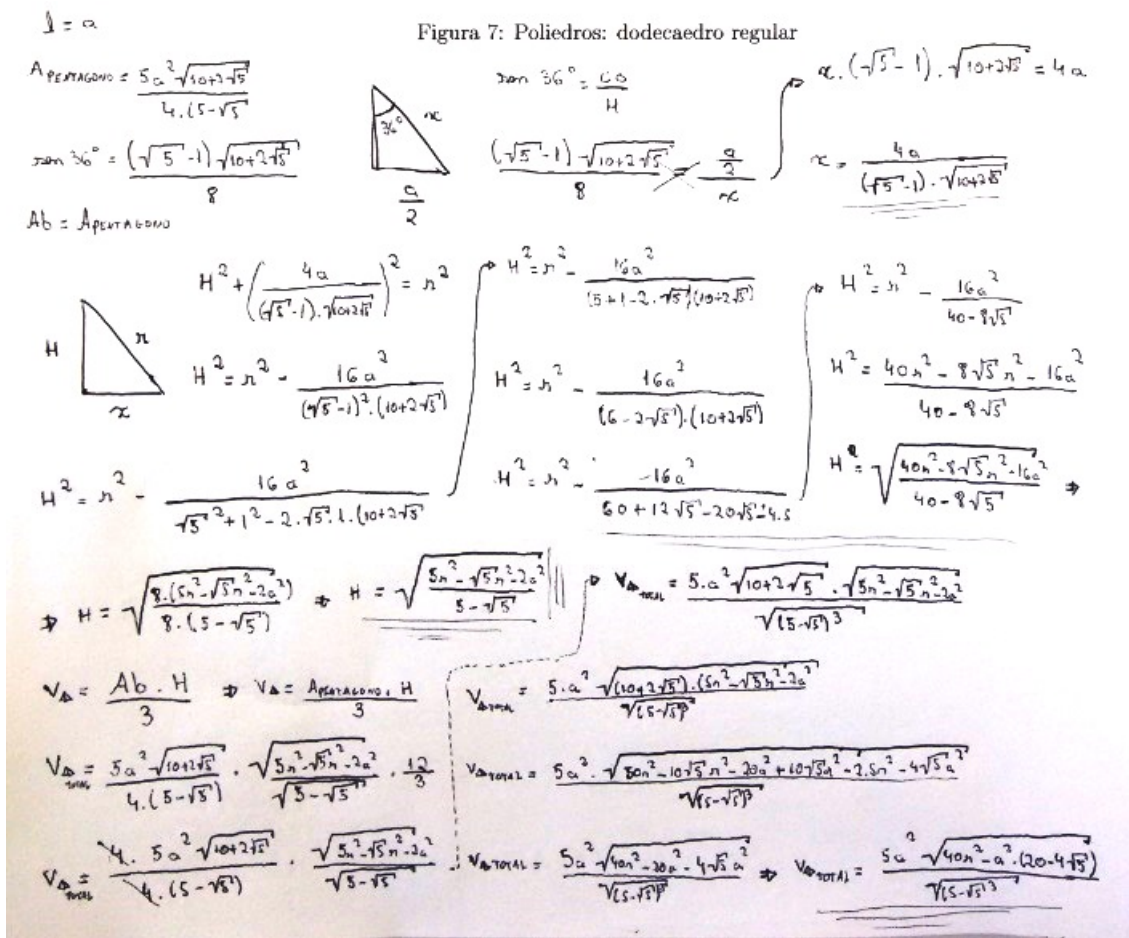 l = a
Figura 7: Poliedros: dodecaedro regular
A PENTAGONO = 5a²√(10+2√5) / 4.(5-√5
sen 36° = co / H
x.(√5 - 1).√(10+2√5) = 4a
36° x a/2
sen 36° = (√5 - 1) √(10+2√5) / 8
(√5 - 1) √(10+2√5) / 8 = a/2 / x
x = 4a / (√5 - 1).√(10+2√5)
Ab = APENTAGONO
H r x
H² + (4a / (√5 - 1).√(10+2√5))² = r²
H² = r² - 16a² / (√5 - 1)².(10+2√5)
H² = r² - 16a² / √5² + 1² - 2.√5.1.(10+2√5
H² = r² - 16a² / (5+1-2.√5)(10+2√5)
H² = r² - 16a² / (6 - 2√5).(10+2√5)
H² = r² - -16a² / 60+12√5-20√5-4.5
H² = r² - 16a² / 40 - 8√5
H² = 40r² - 8√5 r² - 16a² / 40 - 8√5
H = √(40r² - 8√5r² - 16a² / 40 - 8√5) ⇒
⇒ H = √(8.(5r² - √5r² - 2a²) / 8.(5 - √5)) ⇒ H = √(5r² - √5r² - 2a² / 5 - √5)
V△ = Ab . H / 3 ⇒ V△ = APENTAGONO . H / 3
V△TOTAL = 5a²√(10+2√5) / 4.(5-√5) . √(5r² - √5r² - 2a²) / √(5-√5) . 12/3
V△TOTAL = 4. 5a²√(10+2√5) / 4.(5-√5) . √(5r² - √5r² - 2a²) / √(5-√5)
V△TOTAL = 5.a²√(10+2√5) . √(5r² - √5r² - 2a²) / √(5-√5)³
V△TOTAL = 5.a² √((10+2√5).(5r² - √5r² - 2a²) / √(5-√5)³
V△TOTAL = 5a² . √(50r² - 10√5 r² - 20a² + 10√5r² - 2.5r² - 4√5a²) / √(5-√5)³
V△TOTAL = 5a² √(40r² - 20a² - 4√5 a²) / √(5-√5)³ ⇒ V△TOTAL = 5a² √(40r² - a².(20-4√5)) / √(5-√5)³